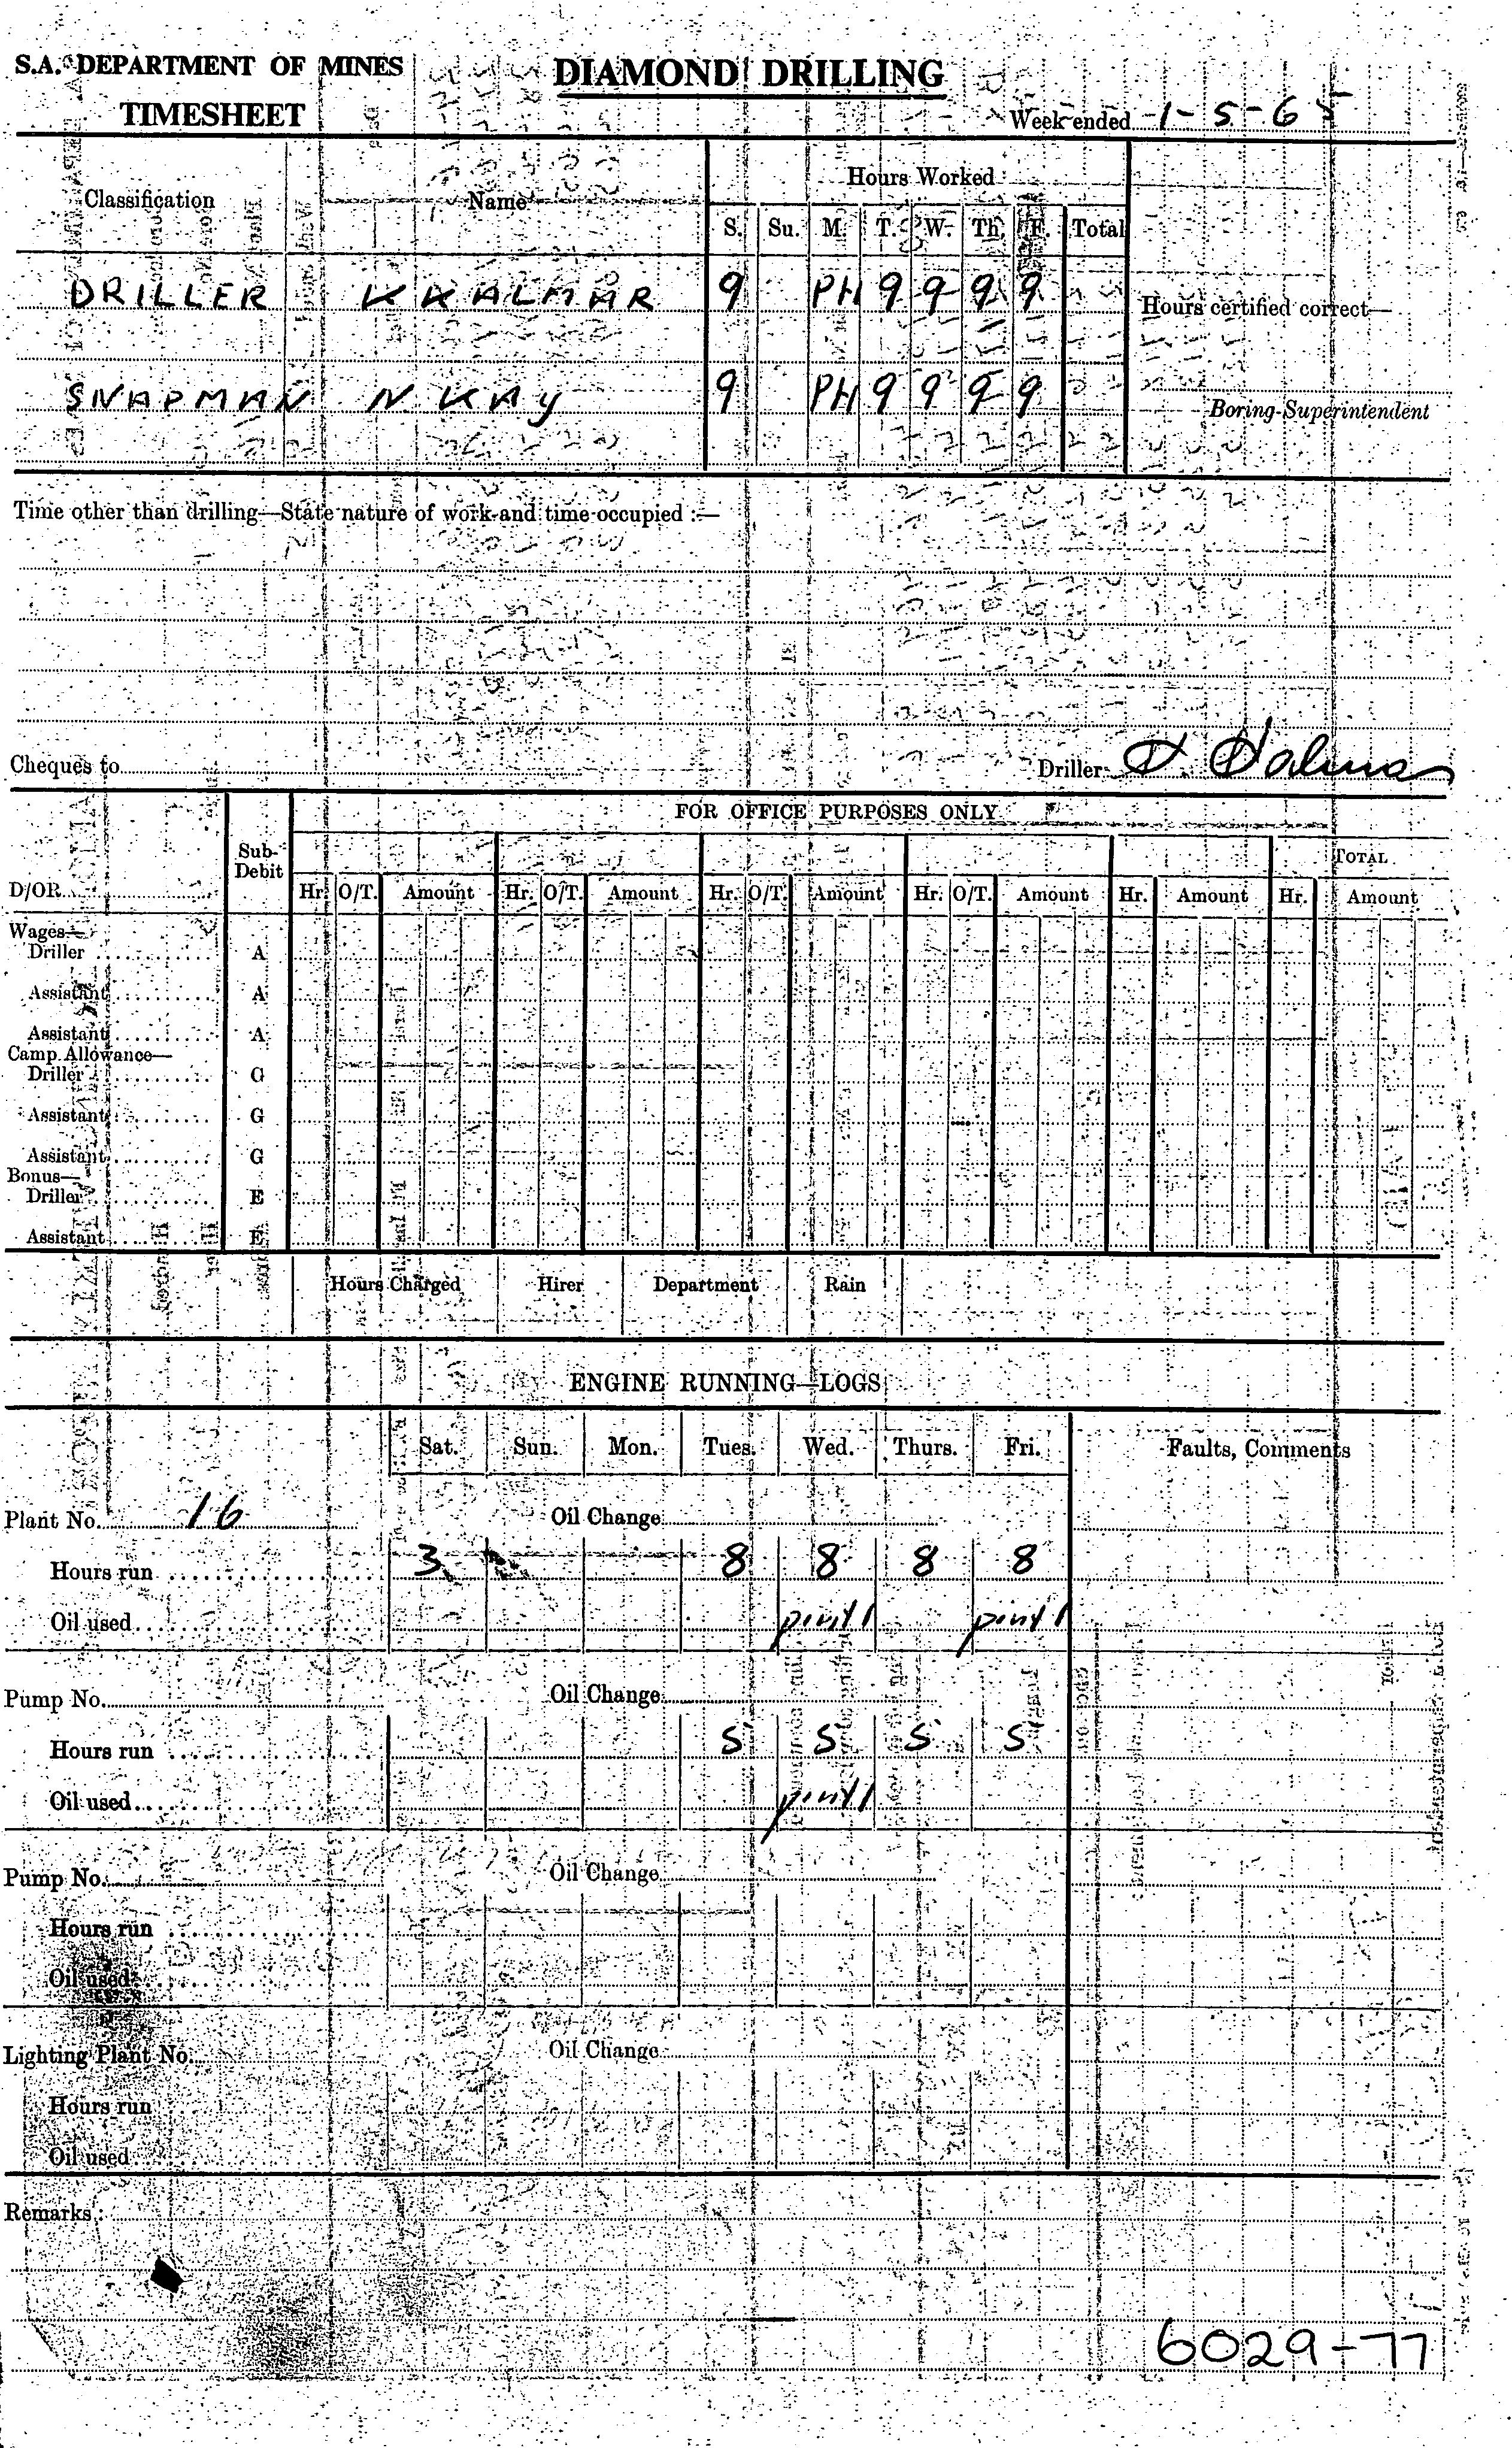 S.A. DEPARTMENT OF MINES
DIAMOND DRILLING
TIMESHEET
Week ended 1-5-65
Classification Name Hours Worked
S. Su. M. T. W. Th. F. Total
DRILLER K KALMAR 9 PH 9 9 9 9
Hours certified correct—
SNAPMAN N KAY 9 PH 9 9 9 9
Boring Superintendent
Time other than drilling—State nature of work and time occupied :—
Cheques to
Driller K. Kalmar
FOR OFFICE PURPOSES ONLY
Sub-Debit TOTAL
D/OR Hr. O/T. Amount Hr. O/T. Amount Hr. O/T. Amount Hr. O/T. Amount Hr. Amount Hr. Amount
Wages—
Driller A
Assistant A
Assistant A
Camp Allowance—
Driller G
Assistant G
Assistant G
Bonus—
Driller E
Assistant E
Hours Charged Hirer Department Rain
ENGINE RUNNING—LOGS
Sat. Sun. Mon. Tues. Wed. Thurs. Fri. Faults, Comments
Plant No. 16 Oil Change
Hours run 3 8 8 8 8
Oil used pint 1 pint 1
Pump No. Oil Change
Hours run 5 5 5 5
Oil used pint 1
Pump No. Oil Change
Hours run
Oil used
Lighting Plant No. Oil Change
Hours run
Oil used
Remarks :
6029-77